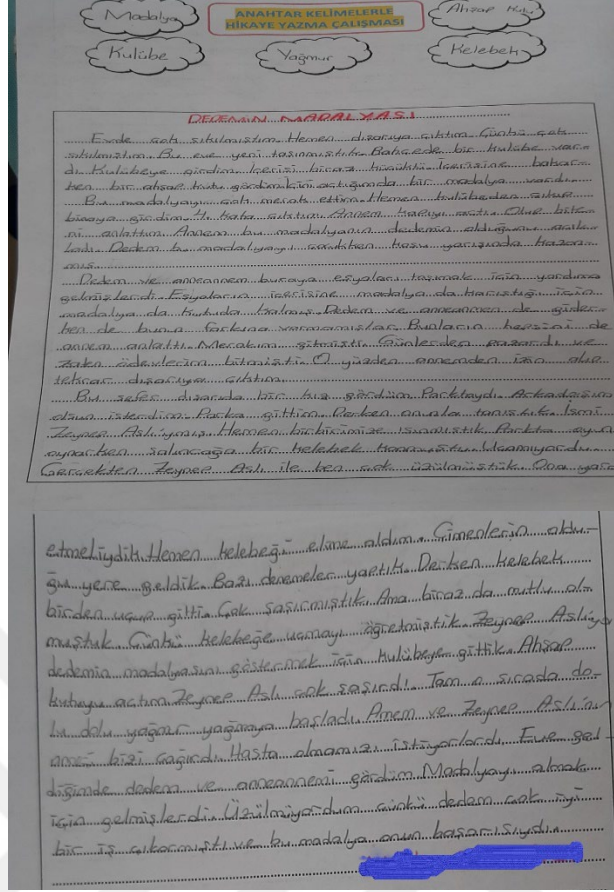 Madalya
ANAHTAR KELİMELERLE
HİKAYE YAZMA ÇALIŞMASI
Ahşap Kutu
Kulübe
Yağmur
Kelebek
DEDEMİN MADALYASI
Evde çok sıkılmıştım. Hemen dışarıya çıktım. Çünkü çok
sıkılmıştım. Bu eve yeni taşınmıştık. Bahçede bir kulübe var-
dı. Kulübeye girdim. İçerisi biraz küçüktü. İçerisine bakar-
ken bir ahşap kutu gördüm. İçini açtığımda bir madalya vardı.
Bu madalyayı çok merak ettim. Hemen kulübeden çıkıp
binaya girdim. kata çıktım. Annem kapıyı açtı. Olup biten-
ni anlattım. Annem bu madalyanın dedemin olduğunu anlat-
ladı. Dedem bu madalyayı çocukken koşu yarışında kazan-
mış.
Dedem ve anneannem buraya eşyaları taşımak için yardıma
gelmişlerdi. Eşyaların içerisine madalya da karıştığı için
madalya da kutuda kalmış. Dedem ve anneannem de gider-
ken de bunun farkına varmamışlar. Bunların hepsini de
annem anlattı. Merakım gitmişti. Günlerden pazardı ve
zaten ödevlerim bitmişti. O yüzden annemden izin alıp
tekrar dışarıya çıktım.
Bu sefer dışarıda bir kız gördüm. Parktaydı. Arkadaşım
olsun isterdim. Parka gittim. Derken onunla tanıştık. İsmi
Zeynep Aslı'ymış. Hemen birbirimize ısınmıştık. Parkta oyun
oynarken salıncağa bir kelebek konmuştu. Uçamıyordu.
Gerçekten Zeynep Aslı ile ben çok üzülmüştük. Ona yard
etmeliydik. Hemen kelebeği elime aldım. Çimenlerin oldu-
ğu yere geldik. Bazı denemeler yaptık. Derken kelebek
birden uçup gitti. Çok şaşırmıştık. Ama biraz da mutlu ol-
muştuk. Çünkü kelebeğe uçmayı öğretmiştik. Zeynep Aslı'ya
dedemin madalyasını göstermek için kulübeye gittik. Ahşap
kutuyu açtım. Zeynep Aslı çok şaşırdı. Tam o sırada do-
lu dolu yağmur yağmaya başladı. Annem ve Zeynep Aslı'nın
annesi bizi çağırdı. Hasta olmamızı istiyorlardı. Eve gel-
diğimde dedem ve anneannemi gördüm. Madalyayı almak
için gelmişlerdi. Üzülmüyordum çünkü dedem çok iyi
bir iş çıkarmıştı ve bu madalya onun başarısıydı.